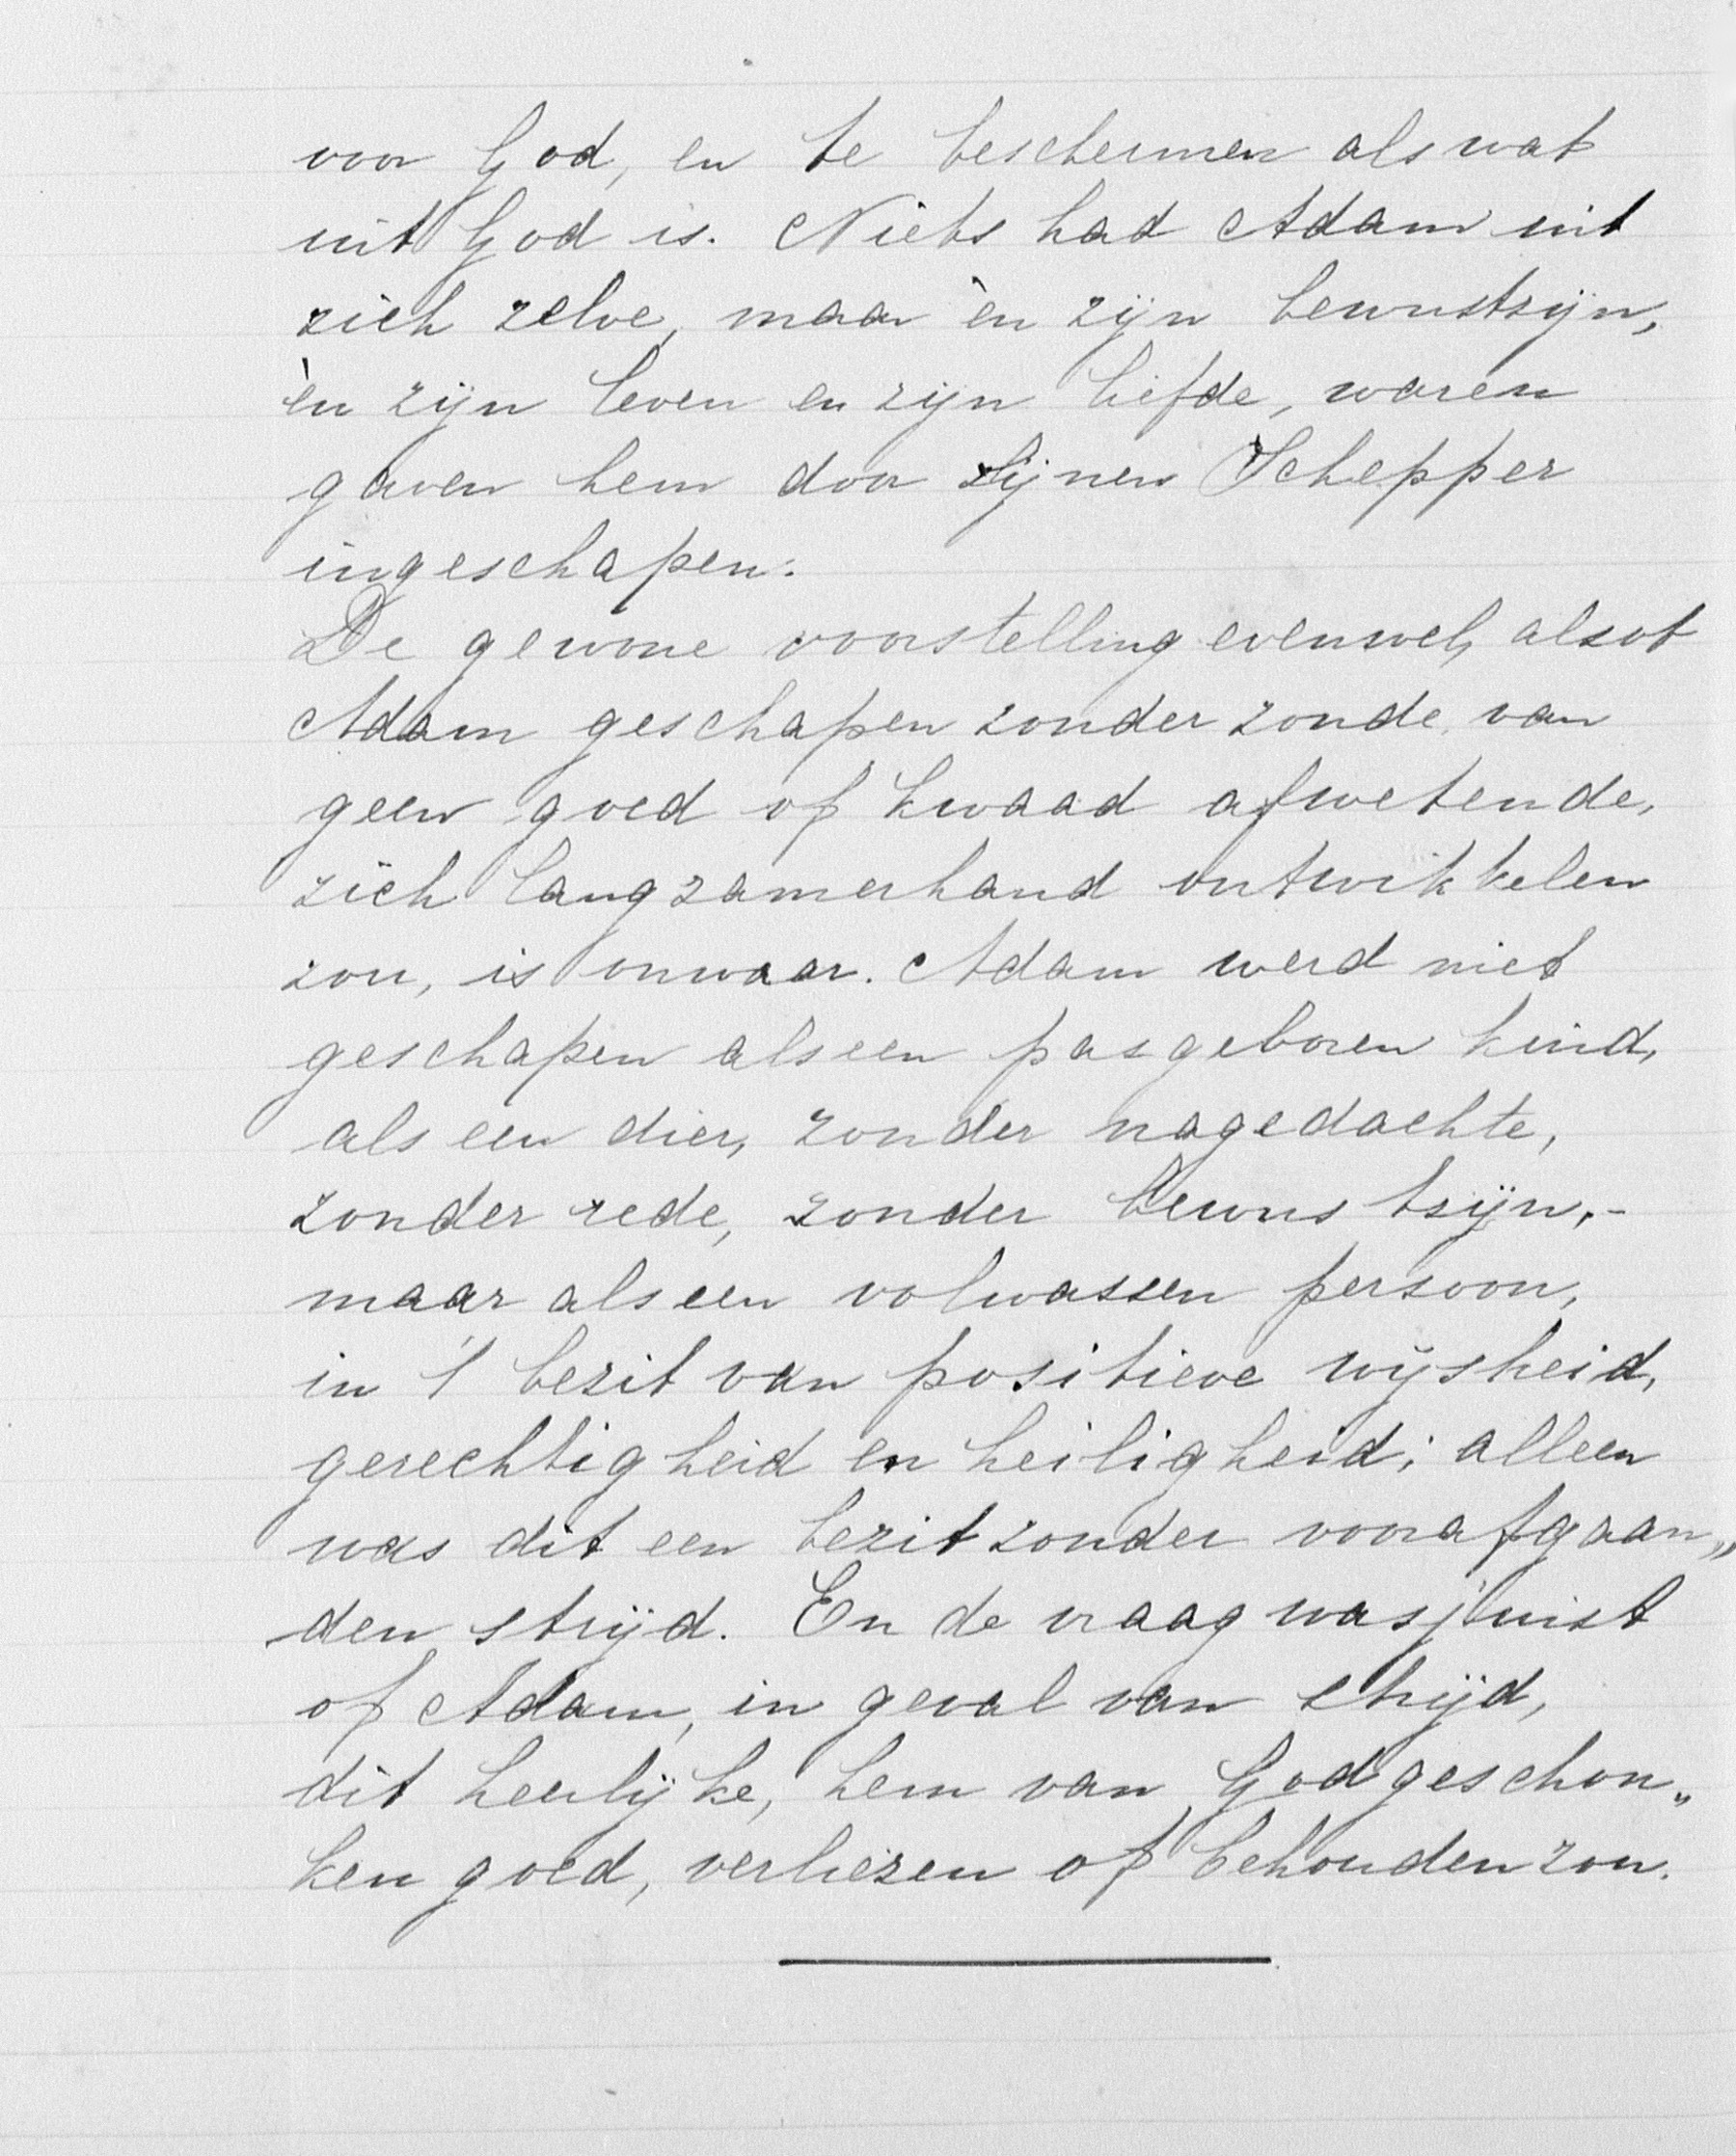 voor God, en te beschermen als wat
uit God is. Niets had Adam uit
zich zelve, maar èn zijn bewustzijn,
èn zijn leven en zijn liefde, waren
gaven hem door zijnen Schepper
ingeschapen.
De gewone voorstelling evenwel, alsof
Adam geschapen zonder zonde, van
geen goed of kwaad afwetende,
zich langzamerhand ontwikkelen
zou, is onwaar. Adam werd niet
geschapen als een pasgeboren kind,
als een dier, zonder nagedachte,
zonder rede, zonder bewustzijn, -
maar als een volwassen persoon,
in 't bezit van positieve wijsheid,
gerechtigheid en heiligheid; alleen
was dit een bezit zonder voorafgaan„
den strijd. En de vraag was juist
of Adam, in geval van strijd,
dit heerlijke, hem van God geschon„
ken goed, verliezen of behouden zou.